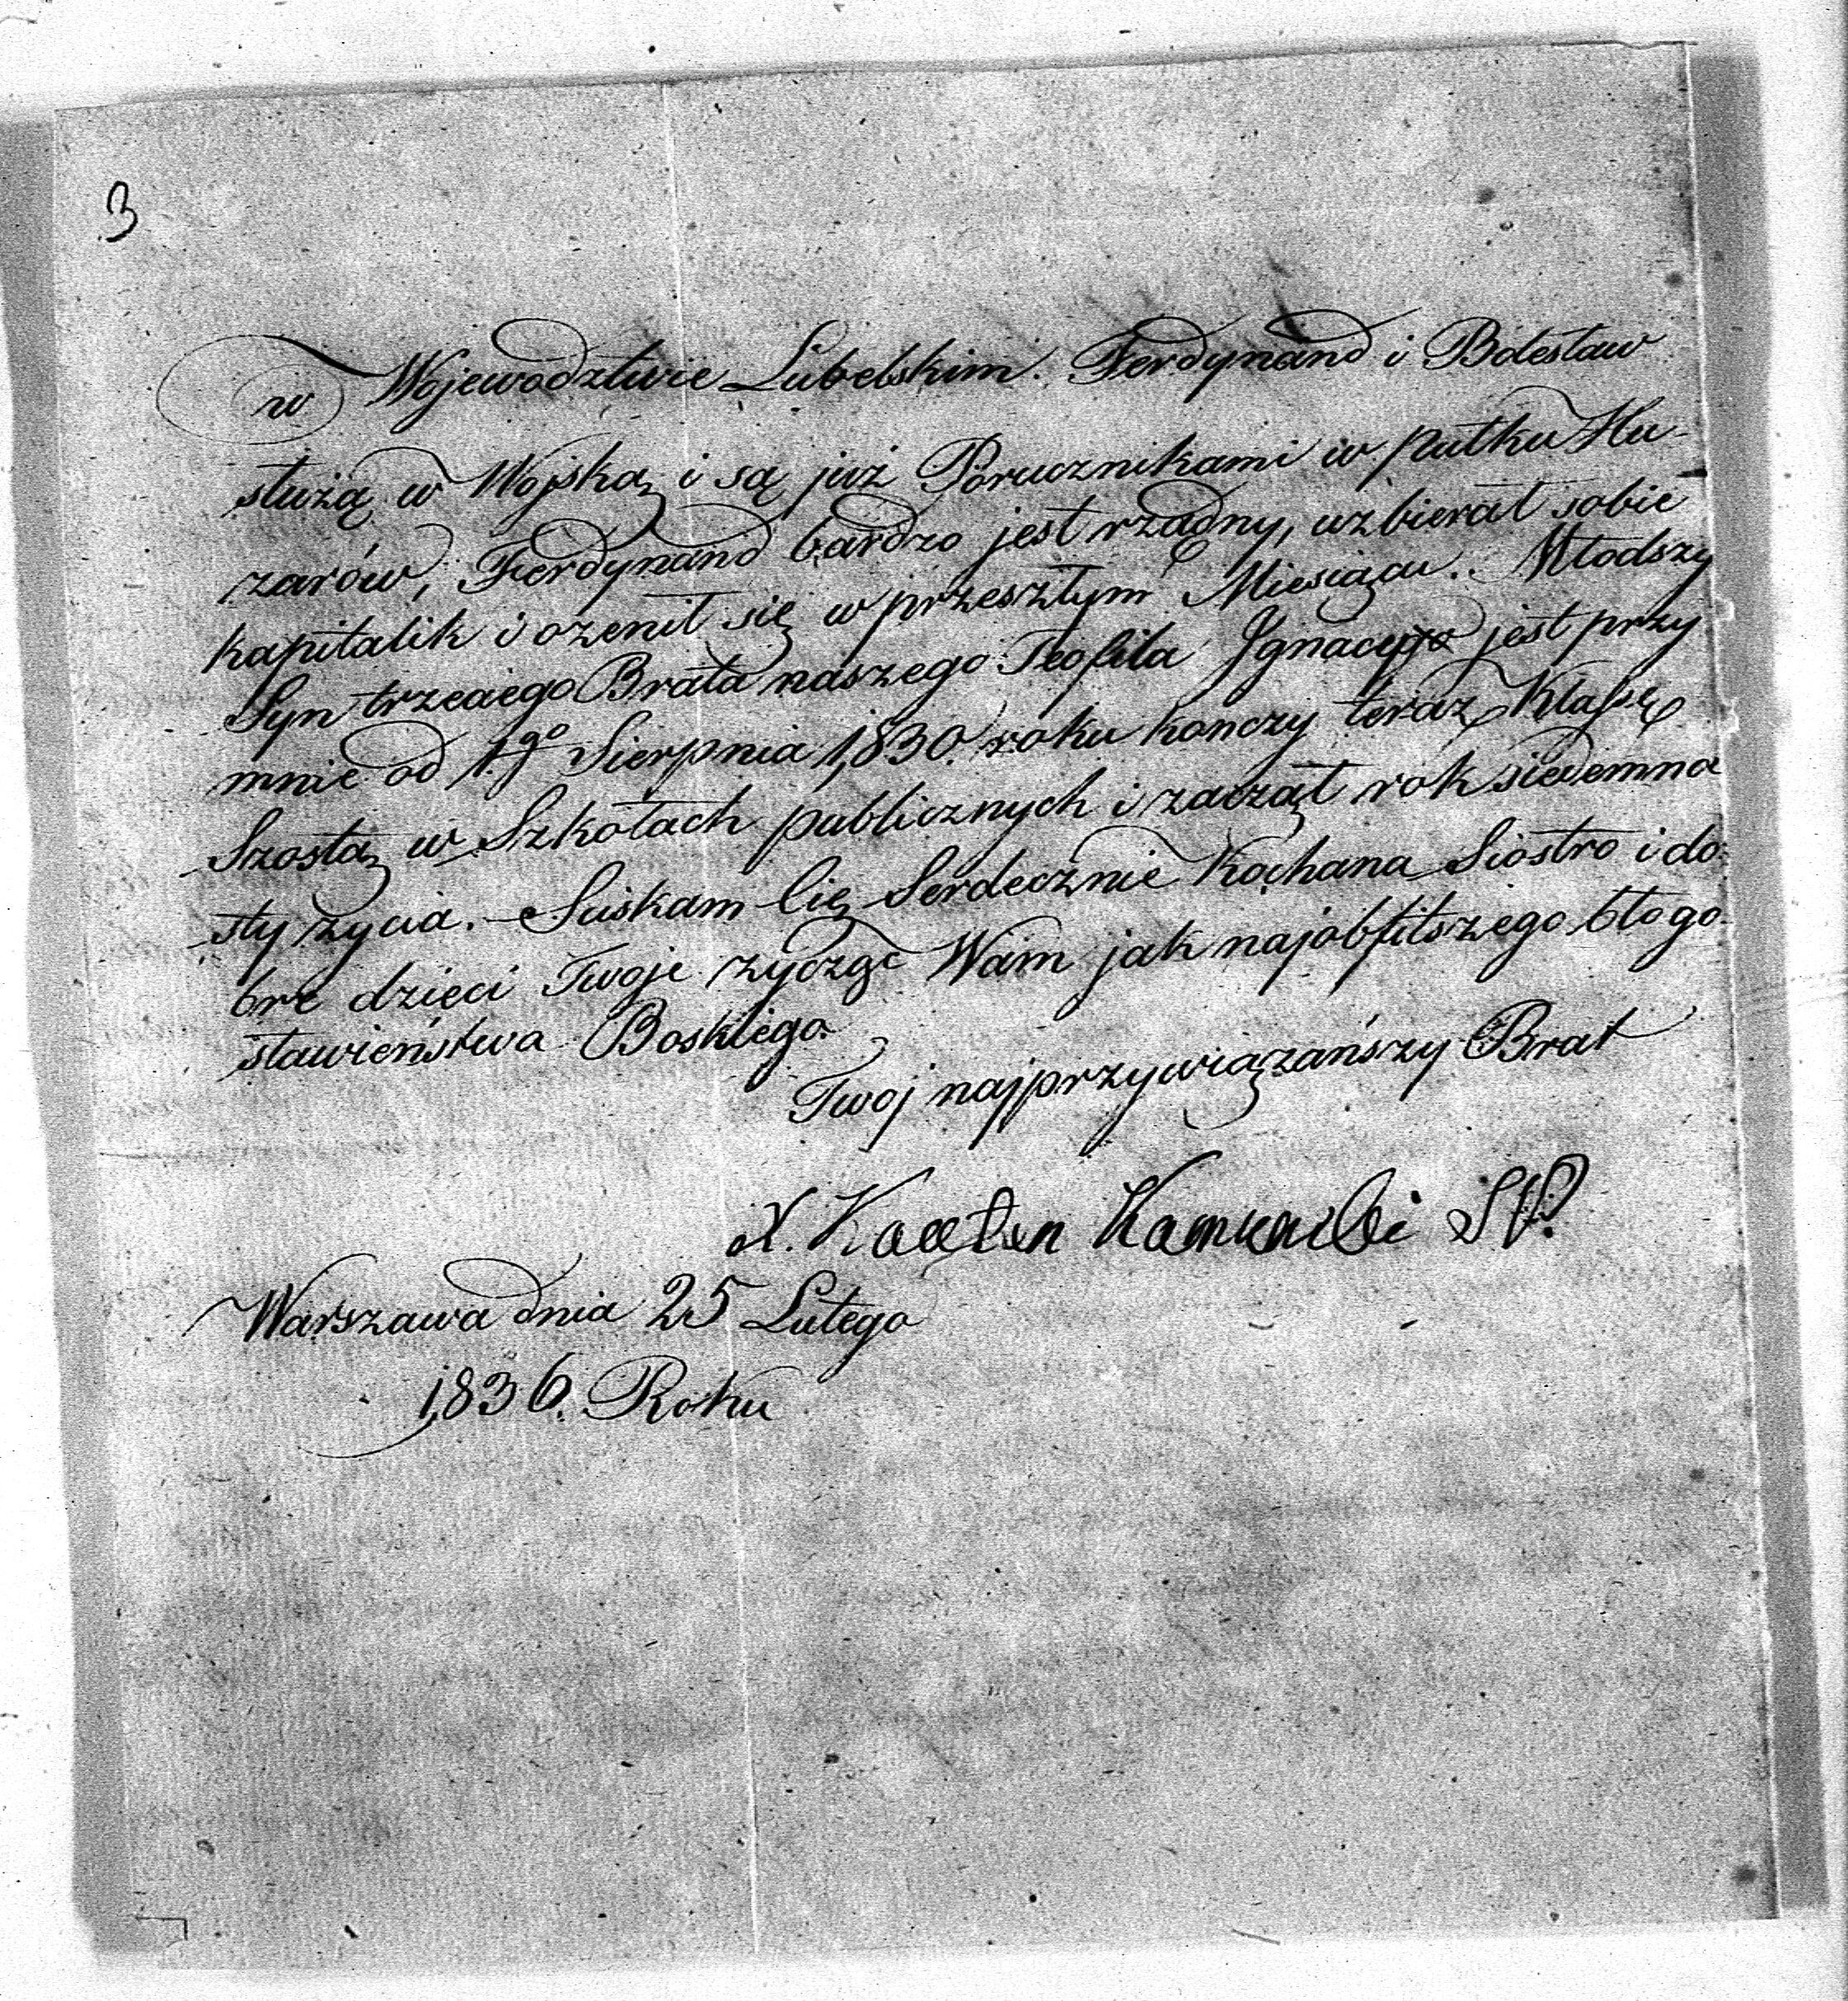 3
w Wojewodztwie Lubelskim. Ferdynand i Bolesław
służą w Wojsku i są już Porucznikami w pułku Hu-
zarów, Ferdynand bardzo jest rządny, uzbierał sobie
kapitalik i ozenił się w przeszłym Miesiącu. Młodszy
Syn trzeciego Brata naszego Teofila Ignacy jest przy
mnie od 1.go Sierpnia 1,830. roku konczy teraz Klassę
Szostą w Szkołach publicznych i zaczął rok siedemna
sty zycia. Sciskam Cię Serdecznie Kochana Siostro i do:
bre dzięci Twoje życząc Wam jak najobfitszego błogo-
sławieństwa Boskiego.
Twoj najprzywiązańszy Brat
X. Kaetan Kamieński SP.
Warszawa dnia 25 Lutego
1,836. Roku